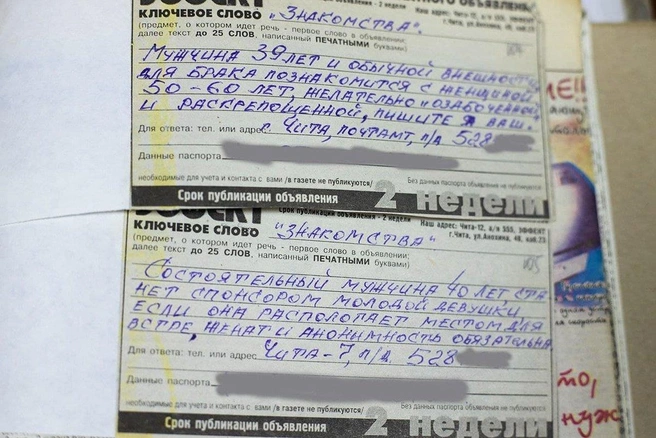 ЭФФЕКТ
КЛЮЧЕВОЕ СЛОВО "ЗНАКОМСТВА".
(предмет, о котором идет речь - первое слово в объявлении;
далее текст до 25 СЛОВ, написанный ПЕЧАТНЫМИ буквами)
Наш адрес: Чита-12, а/я 555, ЭФФЕКТ
г.Чита, ул.Анохина, 48, каб.23
МУЖЧИНА 39 ЛЕТ И ОБЫЧНОЙ ВНЕШНОСТИ
ДЛЯ БРАКА ПОЗНАКОМИТСЯ С ЖЕНЩИНОЙ
50-60 ЛЕТ, ЖЕЛАТЕЛЬНО "ОЗАБОЧЕННОЙ
И РАСКРЕПОЩЕННОЙ, ПИШИТЕ Я ВАШ.
Для ответа: тел. или адрес г. ЧИТА, ПОЧТАМТ, П/Д 528
Данные паспорта
необходимые для учета и контакта с вами /в газете не публикуются/ Без данных паспорта объявления не публикуются
Срок публикации объявления 2 недели
ЭФФЕКТ
Срок публикации объявления - 2 недели
КЛЮЧЕВОЕ СЛОВО "ЗНАКОМСТВА"
(предмет, о котором идет речь - первое слово в объявлении;
далее текст до 25 СЛОВ, написанный ПЕЧАТНЫМИ буквами)
Наш адрес: Чита-12, а/я 555, ЭФФЕКТ
г.Чита, ул.Анохина, 48, каб.23
СОСТОЯТЕЛЬНЫЙ МУЖЧИНА 40 ЛЕТ, СТА
НЕТ СПОНСОРОМ МОЛОДОЙ ДЕВУШКИ
ЕСЛИ ОНА РАСПОЛОГАЕТ МЕСТОМ ДЛЯ
ВСТРЕ, ЖЕНАТ И АНОНИМНОСТЬ ОБЯЗАТЕЛЬНА
Для ответа: тел. или адрес ЧИТА-7, П/Д 528
Данные паспорта
необходимые для учета и контакта с вами /в газете не публикуются/ Без данных паспорта объявления не публикуются
Срок публикации объявления 2 недели